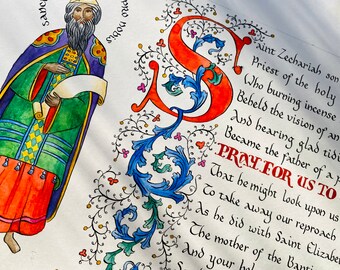 Saint Zechariah son
Priest of the holy
Who burning incense
Beheld the vision of an
And hearing glad tidi
Became the father of a
PRAY FOR US TO
That he might look upon us
To take away our reproach
As he did with Saint Elizabe
The mother of the Baptis
And your hol